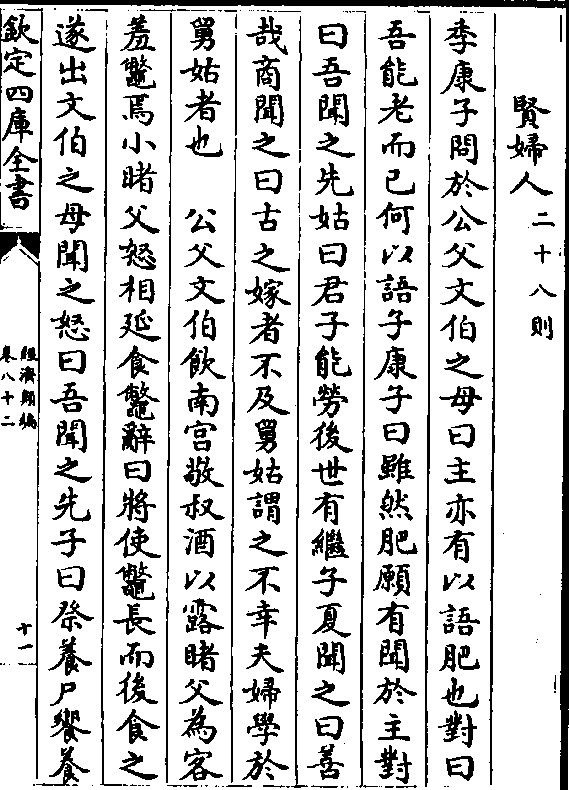 賢婦人二十八則
季康子問於公父文伯之母曰主亦有以語肥也對曰
吾能老而已何以語子康子曰雖然肥願有聞於主對
曰吾聞之先姑曰君子能勞後世有繼子夏聞之曰善
哉商聞之曰古之嫁者不及舅姑謂之不幸夫婦學於
舅姑者也　公父文伯飲南宫敬叔酒以露睹父為客
羞鼈焉小睹父怒相延食鼈辭曰將使鼈長而後食之
遂出文伯之母聞之怒曰吾聞之先子曰祭養尸饗養
欽定四庫全書
經濟類編
卷八十二
十一